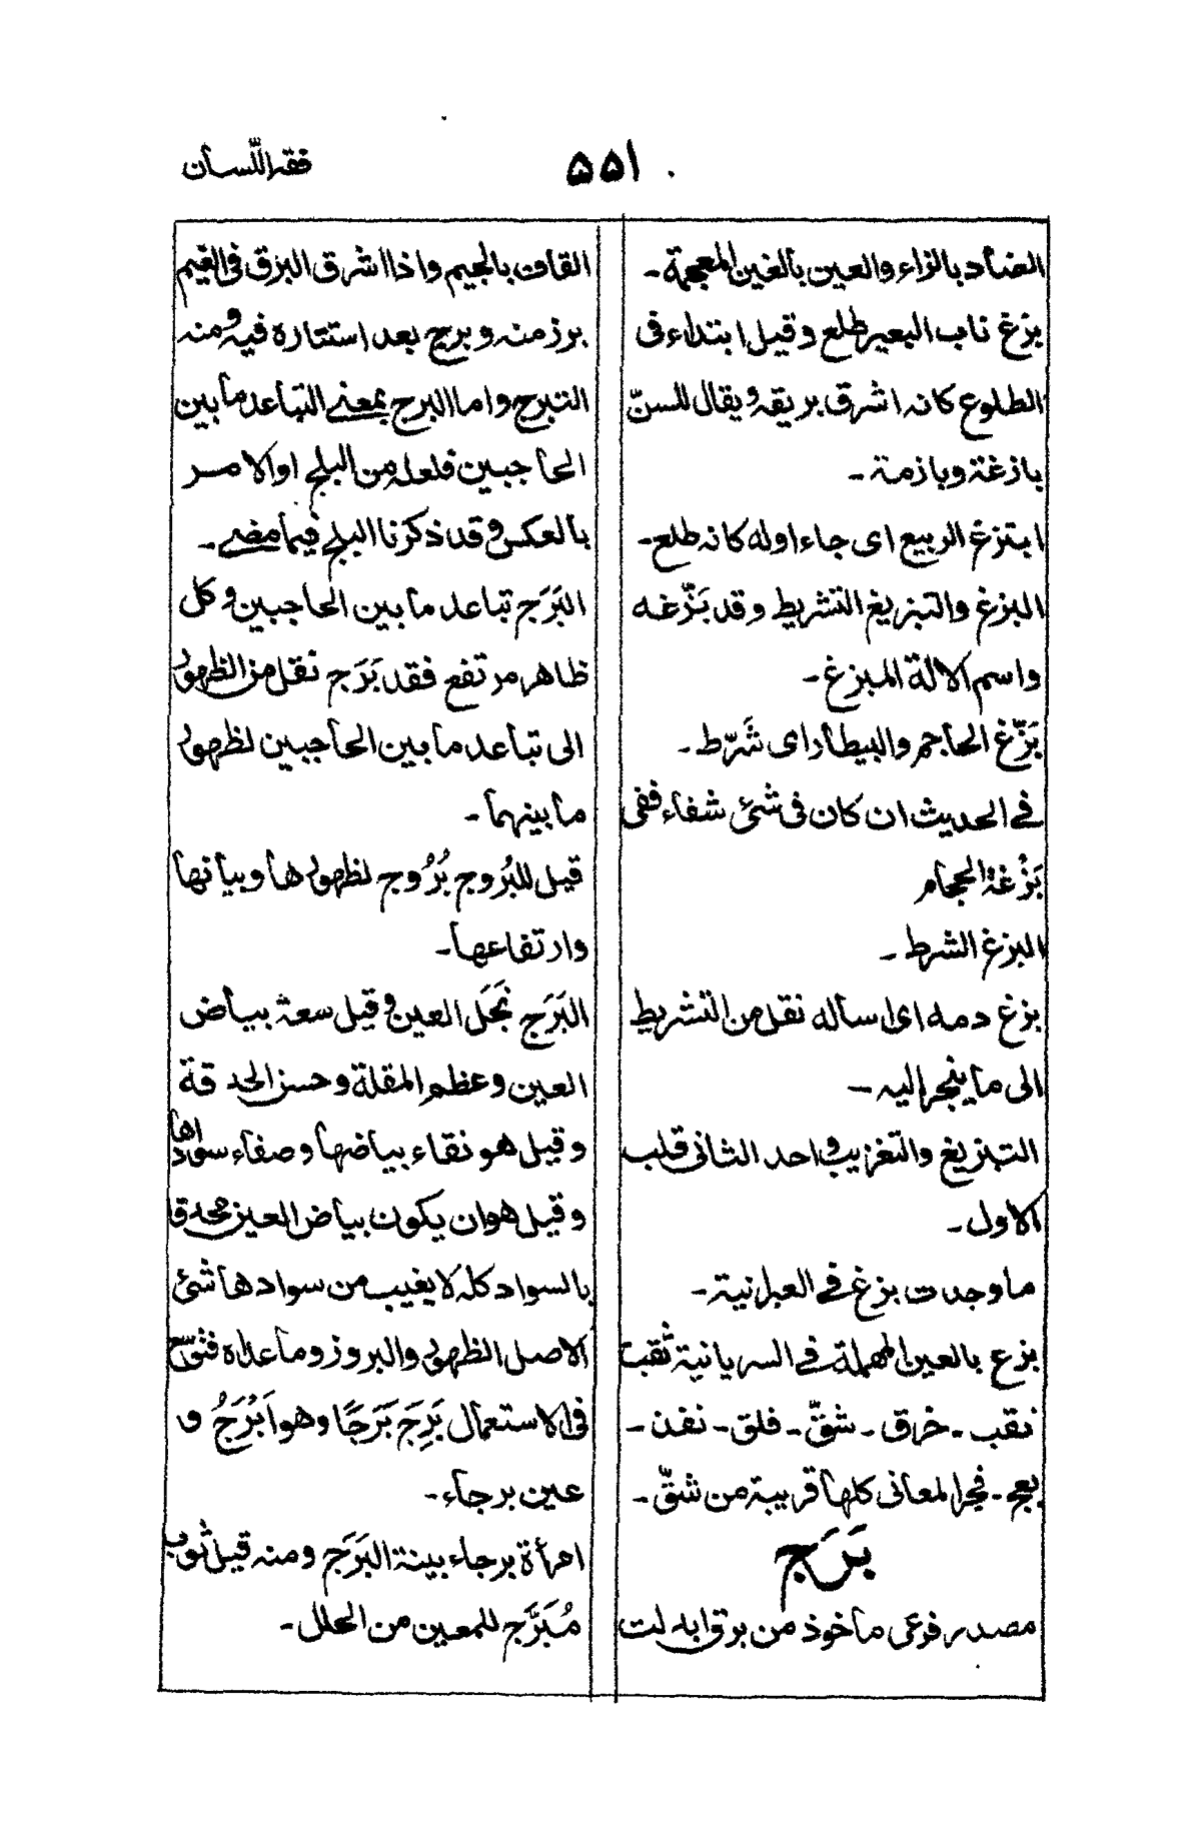 فقه اللّسان
۵۵۱
الضاد بالزاء والعين بالغين المعجمة۔
بزغ ناب البعير طلع وقيل ابتداء فى
الطلوع كانه اشرق بريقه ويقال للسنّ
بازغة وبازمة۔
ابتزغ الربيع اى جاء اوله كانه طلع۔
البزغ والتبزيغ التشريط وقد بَزّغه
واسم الالة المبزغ۔
بَزّغ الحاجم والبيطار اى شَرّط۔
فى الحديث ان كان فى شئ شفاء ففى
بَزْغة الحجام
البزغ الشرط۔
بزغ دمه اى اساله نقل من التشريط
الى ما ينجر اليه۔
التبزيغ والتغزيب واحد الثانى قلب
الاول۔
ما وجدت بزغ فى العبرانية۔
بزع بالعين المهملة فى السريانية ثقب
نقب۔ خرق۔ شقّ۔ فلق۔ نفذ۔
بعج۔ فجر المعانى كلها قريبة من شقّ۔
بَرَج
مصدر فرعى ماخوذ من برق ابدلت
القاف بالجيم واذا اشرق البرق فى الغيم
برز منه وبرج بعد استتاره فيه ومنه
التبرج واما البرج بمعنى التباعد ما بين
الحاجبين فلعله من البلج او الامر
بالعكس وقد ذكرنا البلج فيما مضى۔
البَرَج تباعد ما بين الحاجبين وكل
ظاهر مرتفع فقد بَرَج نقل من الظهور
الى تباعد ما بين الحاجبين لظهور
ما بينهما۔
قيل للبُروج بُرُوج لظهورها وبيانها
وارتفاعها۔
البَرَج نَجَل العين وقيل سعة بياض
العين وعظم المقلة وحسن الحدقة
وقيل هو نقاء بياضها وصفاء سوادها
وقيل هو ان يكون بياض العين محدقا
بالسواد كله لا يغيب من سوادها شئ
الاصل الظهور والبروز وما عداه فتوسّع
فى الاستعمال بَرِجَ بَرَجًا وهو اَبْرَجُ و
عين برجاء۔
امرأة برجاء بينة البَرَج ومنه قيل ثوب
مُبَرَّج للمعين من الحلل۔